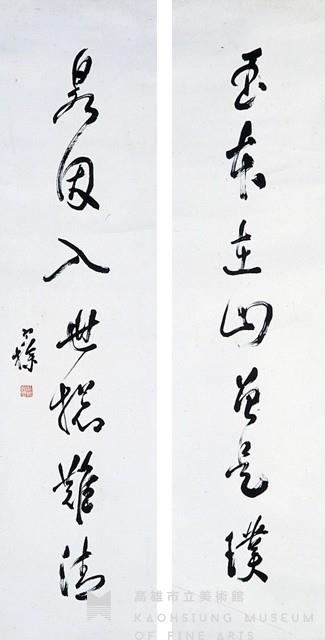 玉本在山曾是璞
泉因入世難清
高雄市立美術館
KAOHSIUNG MUSEUM
OF FINE ARTS